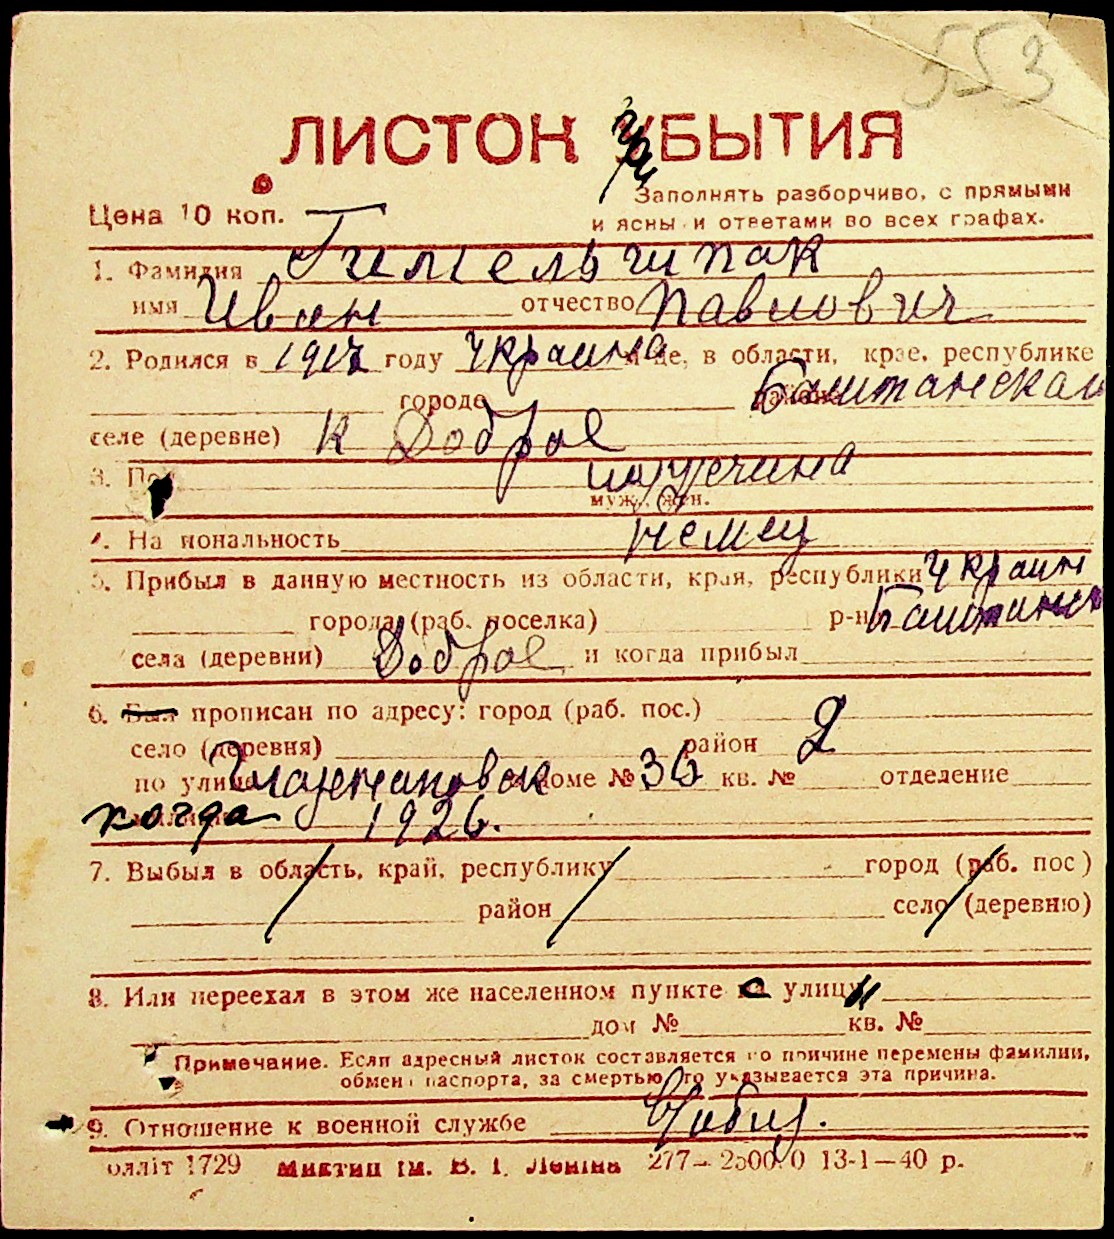 553
ЛИСТОК УБЫТИЯ
Заполнять разборчиво, с прямыми
Цена 10 коп.
и ясными ответами во всех графах.
1. Фамилия Гимельшпак
имя Иван отчество Павлович
2. Родился в 1917 году Украина де, в области, крае, республике
городе районе Баштанскам
селе (деревне) к Доброе
3. Пол мущчина
муж., жен.
4. Национальность немец
5. Прибыл в данную местность из области, края, республики Украин
города (раб. поселка) р-н Баштанск
села (деревни) Доброе и когда прибыл
6. Был прописан по адресу: город (раб. пос.)
село (деревня) район 2
по улице доме № 36 кв. № отделение
когда 1926.
7. Выбыл в область, край, республику город (раб. пос)
район село (деревню)
8. Или переехал в этом же населенном пункте с улицы
дом № кв. №
Примечание. Если адресный листок составляется по причине перемены фамилии,
обмена паспорта, за смертью, то указывается эта причина.
9. Отношение к военной службе
олліт 1729 ім. В. І. Леніна 277—25000 13-1—40 р.